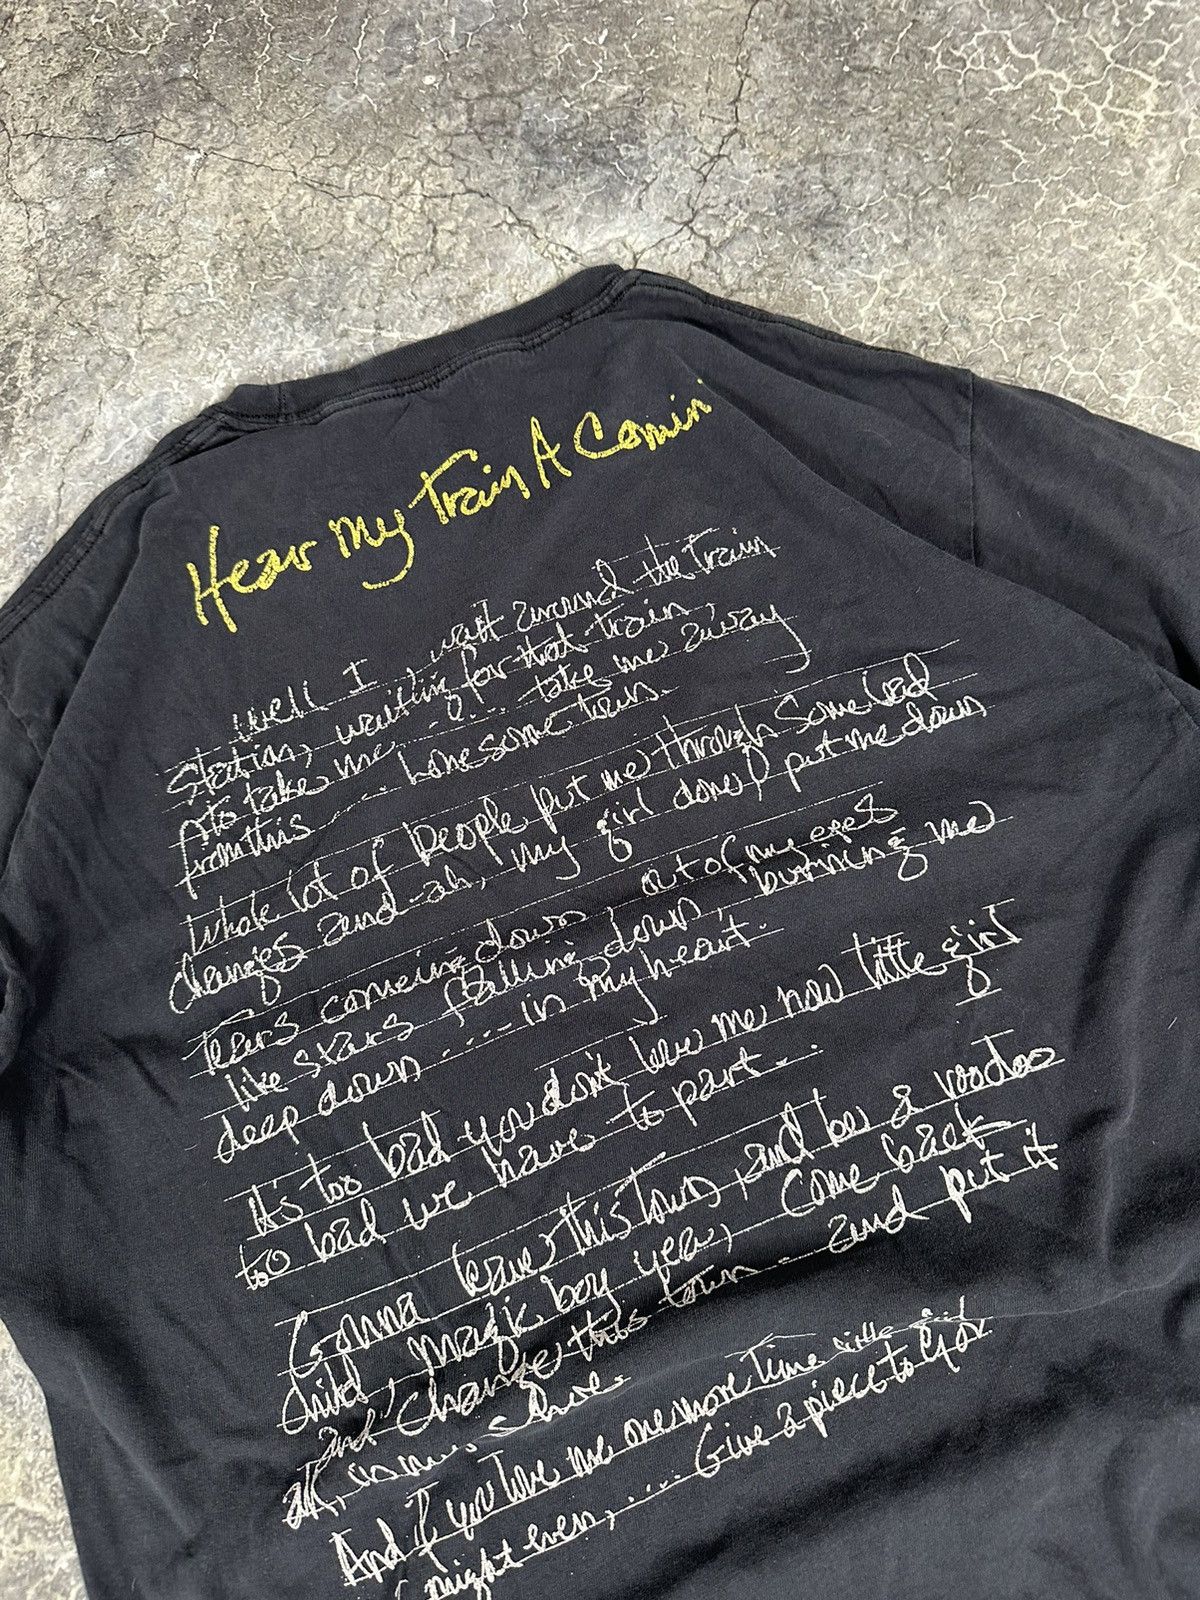 Hear My Train A Comin'
Well I wait around the train
station, waiting for that train,
to take me .... take me away
from this .... lonesome town.
Whole lot of people put me through some bad
changes and-ah, my girl done put me down
Tears comeing down out of my eyes
like stars falling down, burning me
deep down .... in my heart.
It's too bad you don't love me now little girl
too bad we have to part...
Gonna leave this town, and be a voodoo
child, magic boy yea, come back
and change this town. and put it
all, in my shoe.
And if you love me one more time little girl
might even, .... Give a piece to you